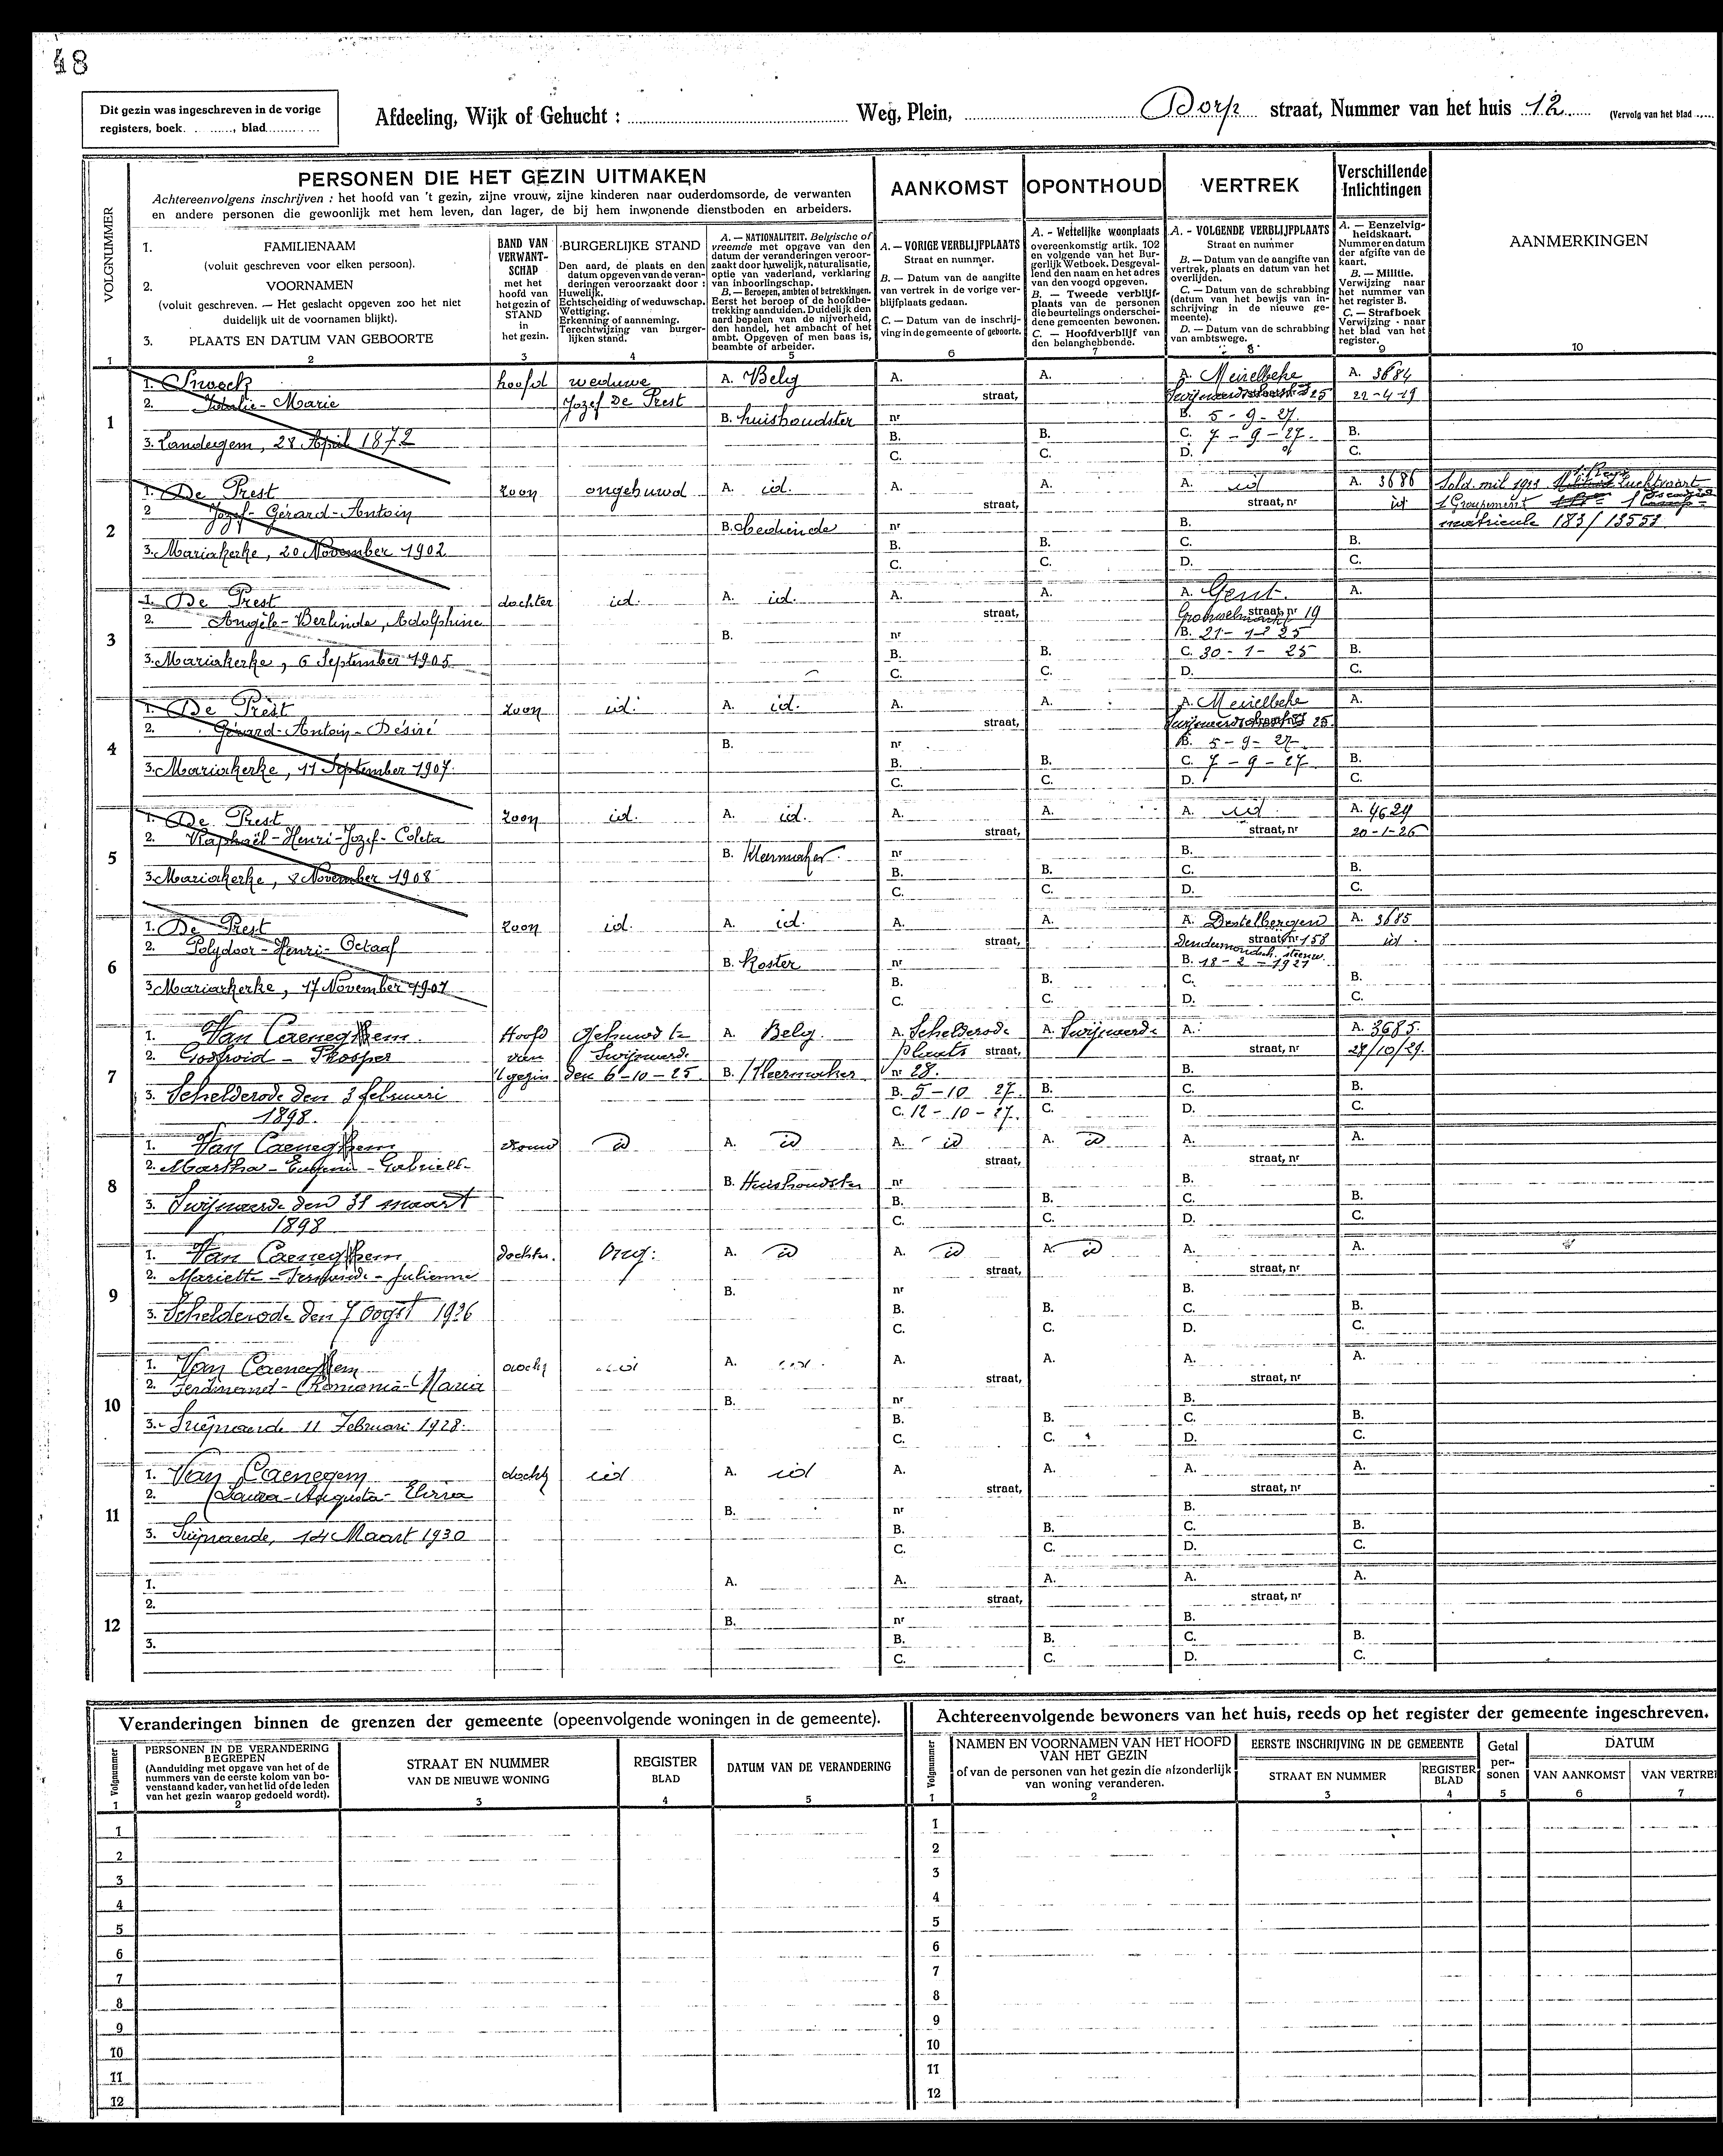 48
Dit gezin was ingeschreven in de vorige
registers, boek. ........, blad...........
Afdeeling, Wijk of Gehucht : ........ Weg, Plein, ........ Dorp straat, Nummer van het huis 12 (Vervolg van het blad ......
VOLGNUMMER
PERSONEN DIE HET GEZIN UITMAKEN
Achtereenvolgens inschrijven : het hoofd van 't gezin, zijne vrouw, zijne kinderen naar ouderdomsorde, de verwanten
en andere personen die gewoonlijk met hem leven, dan lager, de bij hem inwonende dienstboden en arbeiders.
1. FAMILIENAAM
(voluit geschreven voor elken persoon).
2. VOORNAMEN
(voluit geschreven. — Het geslacht opgeven zoo het niet
duidelijk uit de voornamen blijkt).
3. PLAATS EN DATUM VAN GEBOORTE
BAND VAN
VERWANT-
SCHAP
met het
hoofd van
het gezin of
STAND
in
het gezin.
BURGERLIJKE STAND
Den aard, de plaats en den
datum opgeven van de veran-
deringen veroorzaakt door :
Huwelijk.
Echtscheiding of weduwschap.
Wettiging.
Erkenning of aanneming.
Terechtwijzing van burger-
lijken stand.
A. — NATIONALITEIT. Belgische of
vreemde met opgave van den
datum der veranderingen veroor-
zaakt door huwelijk, naturalisatie,
optie van vaderland, verklaring
van inboorlingschap.
B. — Beroepen, ambten of betrekkingen.
Eerst het beroep of de hoofdbe-
trekking aanduiden. Duidelijk den
aard bepalen van de nijverheid,
den handel, het ambacht of het
ambt. Opgeven of men baas is,
beambte of arbeider.
AANKOMST
A. — VORIGE VERBLIJFPLAATS
Straat en nummer.
B. — Datum van de aangifte
van vertrek in de vorige ver-
blijfplaats gedaan.
C. — Datum van de inschrij-
ving in de gemeente of geboorte.
OPONTHOUD
A. - Wettelijke woonplaats
overeenkomstig artik. 102
en volgende van het Bur-
gerlijk Wetboek. Desgeval-
lend den naam en het adres
van den voogd opgeven.
B. — Tweede verblijf-
plaats van de personen
die beurtelings onderschei-
dene gemeenten bewonen.
C. — Hoofdverblijf van
den belanghebbende.
VERTREK
A. - VOLGENDE VERBLIJFPLAATS
Straat en nummer
B. — Datum van de aangifte van
vertrek, plaats en datum van het
overlijden.
C. — Datum van de schrabbing
(datum van het bewijs van in-
schrijving in de nieuwe ge-
meente).
D. — Datum van de schrabbing
van ambtswege.
Verschillende
Inlichtingen
A. — Eenzelvig-
heidskaart.
Nummer en datum
der afgifte van de
kaart.
B. — Militie.
Verwijzing naar
het nummer van
het register B.
C. — Strafboek
Verwijzing - naar
het blad van het
register.
AANMERKINGEN
1 2 3 4 5 6 7 8 9 10
1
1. Snoeck hoofd weduwe A. Belg A. A. A. Meirelbeke A. 3684
2. Marie Jozef De Prest straat, 25 22-4-19
B. huishoudster nr B. 5 - 9 - 27.
3. Landegem, 28 April 1872 B. B. C. 7 - 9 - 27. B.
C. C. D. C.
2
1. De Prest zoon ongehuwd A. id. A. A. A. id A. 3686 Sold. mil 1923 Luchtvaart
2 Jozef-Gérard-Antoin straat, straat, nr id 1 Groupement
B. bediende nr B. matricule 183/13553
3. Mariakerke, 20 November 1902 B. B. C. B.
C. C. D. C.
3
1. De Prest dochter id. A. id. A. A. A. Gent. A.
2. Angèle-Berlinde, Adolphine straat, straat, nr 19
B. nr B. 21- 1- 25
3. Mariakerke, 6 September 1905 B. B. C. 30 - 1 - 25 B.
C. C. D. C.
4
1. De Prest zoon id. A. id. A. A. A. Meirelbeke A.
2. Gérard-Antoin-Désiré straat, 25.
B. nr B. 5 - 9 - 27
3. Mariakerke, 11 September 1907. B. B. C. 7 - 9 - 27 B.
C. C. D. C.
5
1. De Prest zoon id. A. id. A. A. A. id A. 4629
2. Raphaël-Henri-Jozef-Coleta straat, straat, nr 20-1-26
B. Kleermaker nr B.
3. Mariakerke, 8 November 1908 B. B. C. B.
C. C. D. C.
6
1. De Prest zoon id. A. id. A. A. A. Destelbergen A. 3685
2. Polydoor-Henri-Octaaf straat, straat, nr 158 id.
B. Koster nr B. 18 - 2 - 1921
3. Mariakerke, 17 November 1901 B. B. C. B.
C. C. D. C.
7
1. Van Caeneghem Hoofd Gehuwd te A. Belg. A. Schelderode A. Swijnaerde A. A. 3685.
2. Godfroid - Prosper van Swijnaerde plaats straat, straat, nr 28/10/29.
't gezin den 6-10-25. B. Kleermaker nr 28. B.
3. Schelderode den 3 februari B. 5-10 27. B. C. B.
1898. C. 12 - 10 - 27. C. D. C.
8
1. Van Caeneghem vrouw id A. id A. id A. id A. A.
2. Martha - Eugeni - Gabrielle straat, straat, nr
B. Huishoudster nr B.
3. Swijnaerde den 31 maart B. B. C. B.
1898 C. C. D. C.
9
1. Van Caeneghem dochter. Ong: A. id A. id A. id A. A.
2. Mariette - - Julienne straat, straat, nr
B. nr B.
3. Schelderode den 7 Oogst 1926 B. B. C. B.
C. C. D. C.
10
1. Van Caeneghem docht id A. id. A. A. A. A.
2. Ferdinand - Romania - Maria straat, straat, nr
B. nr B.
3. Swijnaerde 11 Februari 1928. B. B. C. B.
C. C. D. C.
11
1. Van Caenegem docht id A. id A. A. A. A.
2. Laura-Augusta-Elvira straat, straat, nr
B. nr B.
3. Swijnaerde, 14 Maart 1930 B. B. C. B.
C. C. D. C.
12
1. A. A. A. A. A.
2. straat, straat, nr
B. nr B.
3. B. B. C. B.
C. C. D. C.
Veranderingen binnen de grenzen der gemeente (opeenvolgende woningen in de gemeente).
Volgnummer
PERSONEN IN DE VERANDERING
BEGREPEN
(Aanduiding met opgave van het of de
nummers van de eerste kolom van bo-
venstaand kader, van het lid of de leden
van het gezin waarop gedoeld wordt).
STRAAT EN NUMMER
VAN DE NIEUWE WONING
REGISTER
BLAD
DATUM VAN DE VERANDERING
1 2 3 4 5
1
2
3
4
5
6
7
8
9
10
11
12
Achtereenvolgende bewoners van het huis, reeds op het register der gemeente ingeschreven.
Volgnummer
NAMEN EN VOORNAMEN VAN HET HOOFD
VAN HET GEZIN
of van de personen van het gezin die afzonderlijk
van woning veranderen.
EERSTE INSCHRIJVING IN DE GEMEENTE
STRAAT EN NUMMER
REGISTER
BLAD
Getal
per-
sonen
DATUM
VAN AANKOMST VAN VERTRE
1 2 3 4 5 6 7
1
2
3
4
5
6
7
8
9
10
11
12